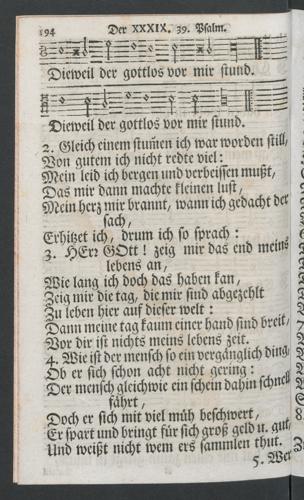 194 Der XXXIX. 39. Psalm.
Dieweil der gottlos vor mir stund.
Dieweil der gottlos vor mir stund.
2. Gleich einem stum̃en ich war worden still,
Von gutem ich nicht redte viel:
Mein leid ich bergen und verbeissen mußt,
Das mir dann machte kleinen lust,
Mein herz mir brannt, wann ich gedacht der
sach,
Erhitzet ich, drum ich so sprach:
3. HErꝛ GOtt! zeig mir das end meins
lebens an,
Wie lang ich doch das haben kan,
Zeig mir die tag, die mir sind abgezehlt
Zu leben hier auf dieser welt:
Dann meine tag kaum einer hand sind breit,
Vor dir ist nichts meins lebens zeit.
4. Wie ist der mensch so ein vergänglich ding,
Ob er sich schon acht nicht gering:
Der mensch gleichwie ein schein dahin schnell
fährt,
Doch er sich mit viel müh beschwert,
Er spart und bringt für sich groß geld u. gut,
Und weißt nicht wem ers sammlen thut.
5. Wer